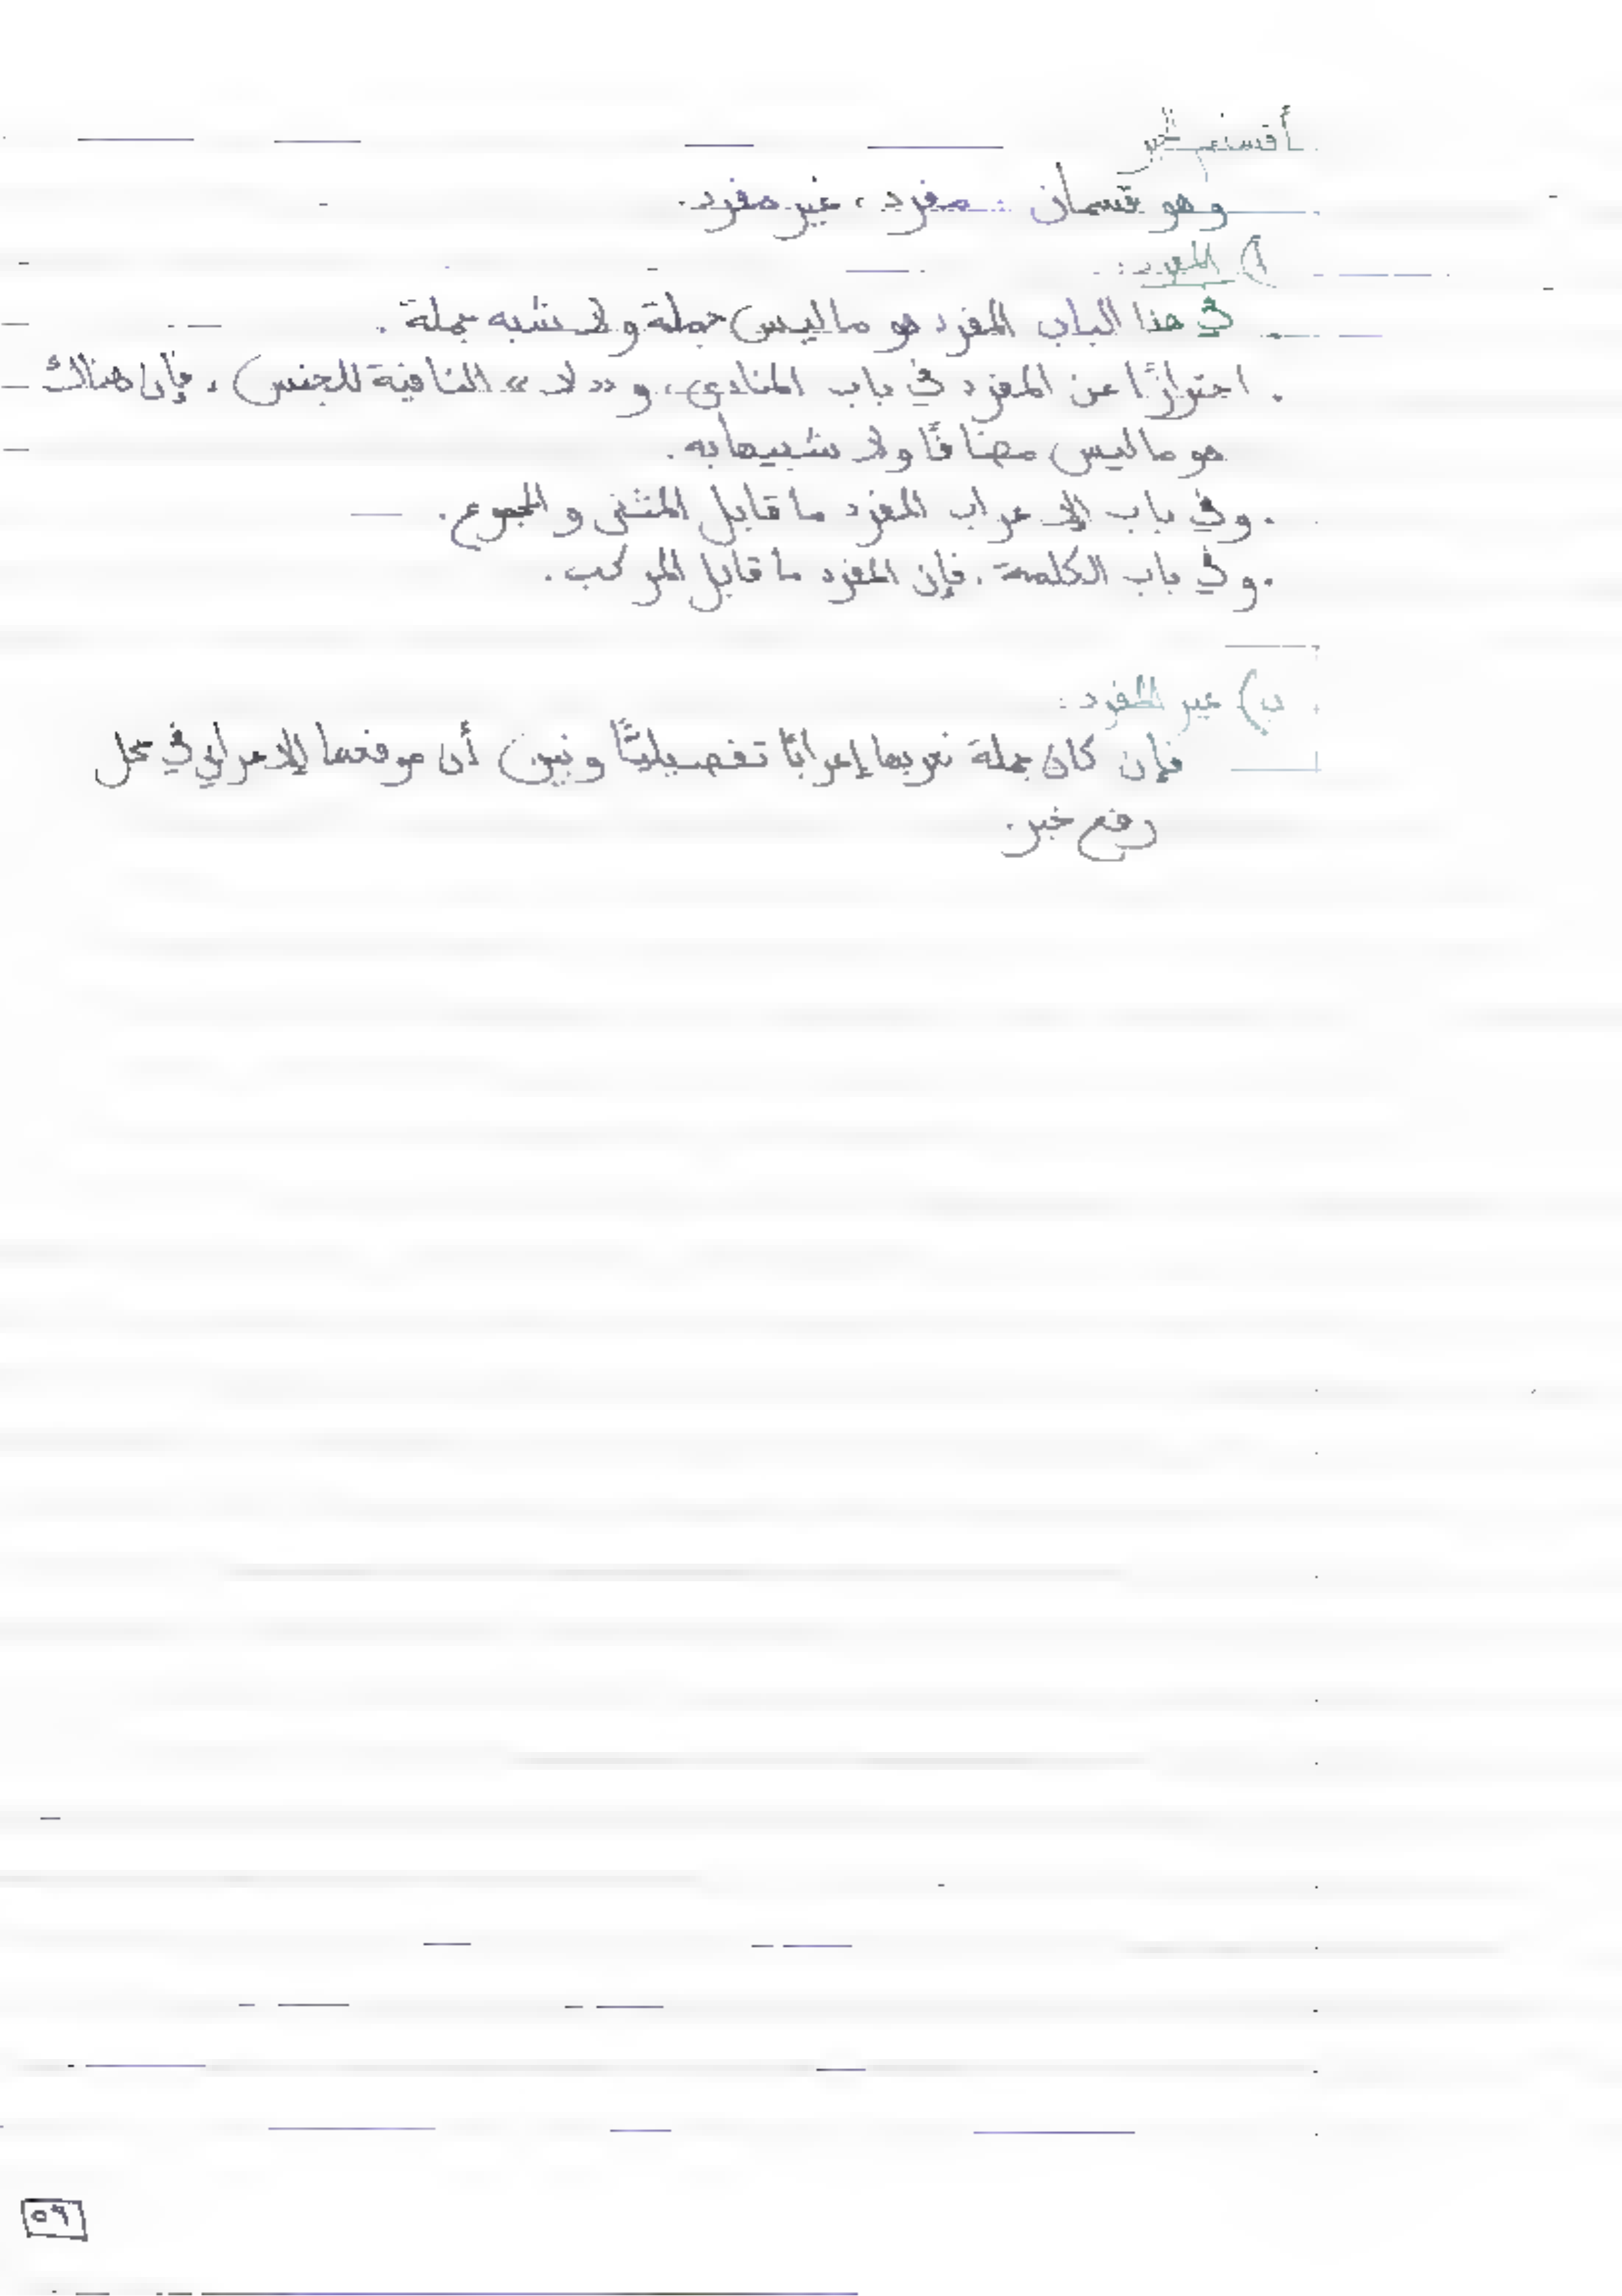 أقسام الخبر
وهو قسمان : مفرد ، غير مفرد .
أ) المفرد :
في هذا الباب المفرد هو ما ليس جملة ولا شبه جملة .
. احترازًا عن المفرد في باب المنادى ، و « لا » النافية للجنس ، فإن هناك
هو ما ليس مضافًا ولا شبيها به .
. وفي باب الإعراب المفرد ما قابل المثنى والمجموع .
. وفي باب الكلمة ، فإن المفرد ما قابل المركب .
ب) غير المفرد :
فإن كان جملة نعربها إعرابًا تفصيليًّا ونبين أن موقعها الإعرابي في محل
رفع خبر .
٥٩